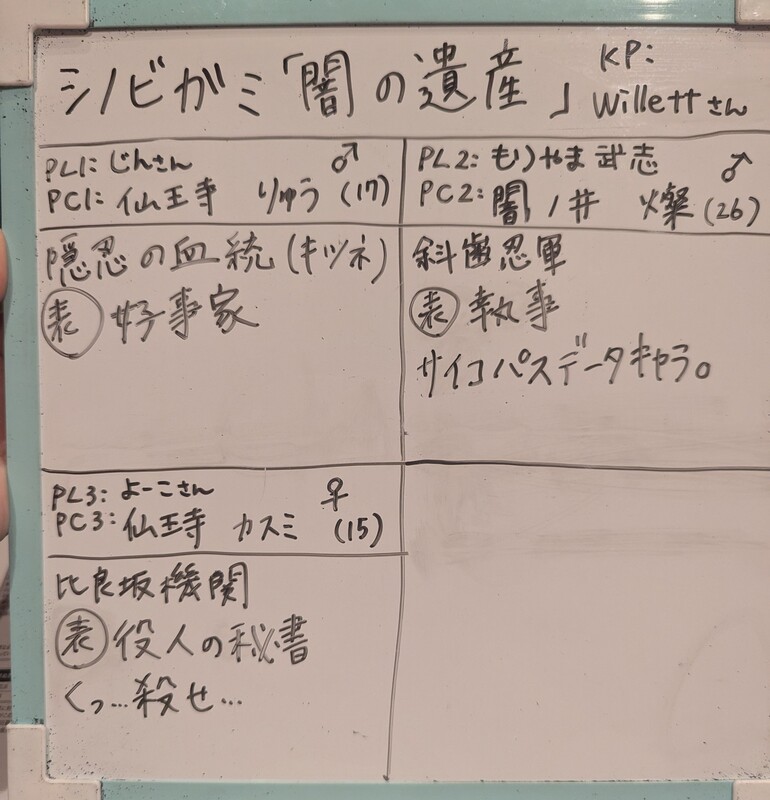 シノビガミ「闇の遺産」
KP:
Willettさん
PL1: じんさん ♂
PC1: 仙王寺 りゅう (17)
隠忍の血統 (キツネ)
表 好事家
PL2: もりやま 武志 ♂
PC2: 闇ノ井 燦 (26)
斜歯忍軍
表 執事
サイコパスデータキャラ。
PL3: よーこさん ♀
PC3: 仙王寺 カスミ (15)
比良坂機関
表 役人の秘書
くっ…殺せ…